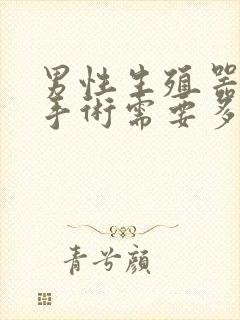 男性生殖器
手術需要多
青兮顔